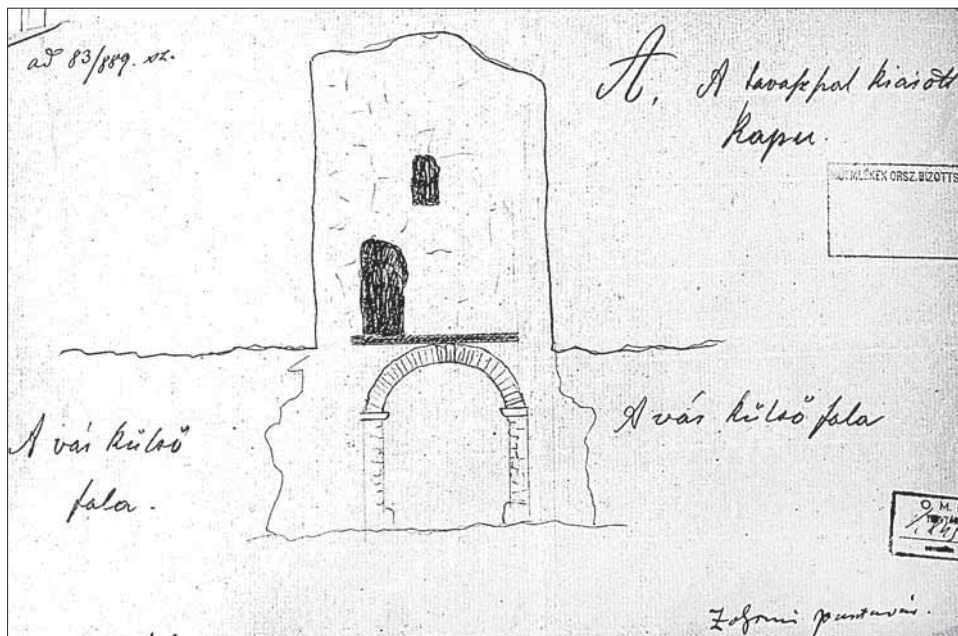 ad 83/889. sz.
A, A tavaszszal kiásott
kapu.
EMLÉKEK ORSZ. BIZOTTS
A vár külső
fala.
A vár külső fala
O. M.
pusztavár.